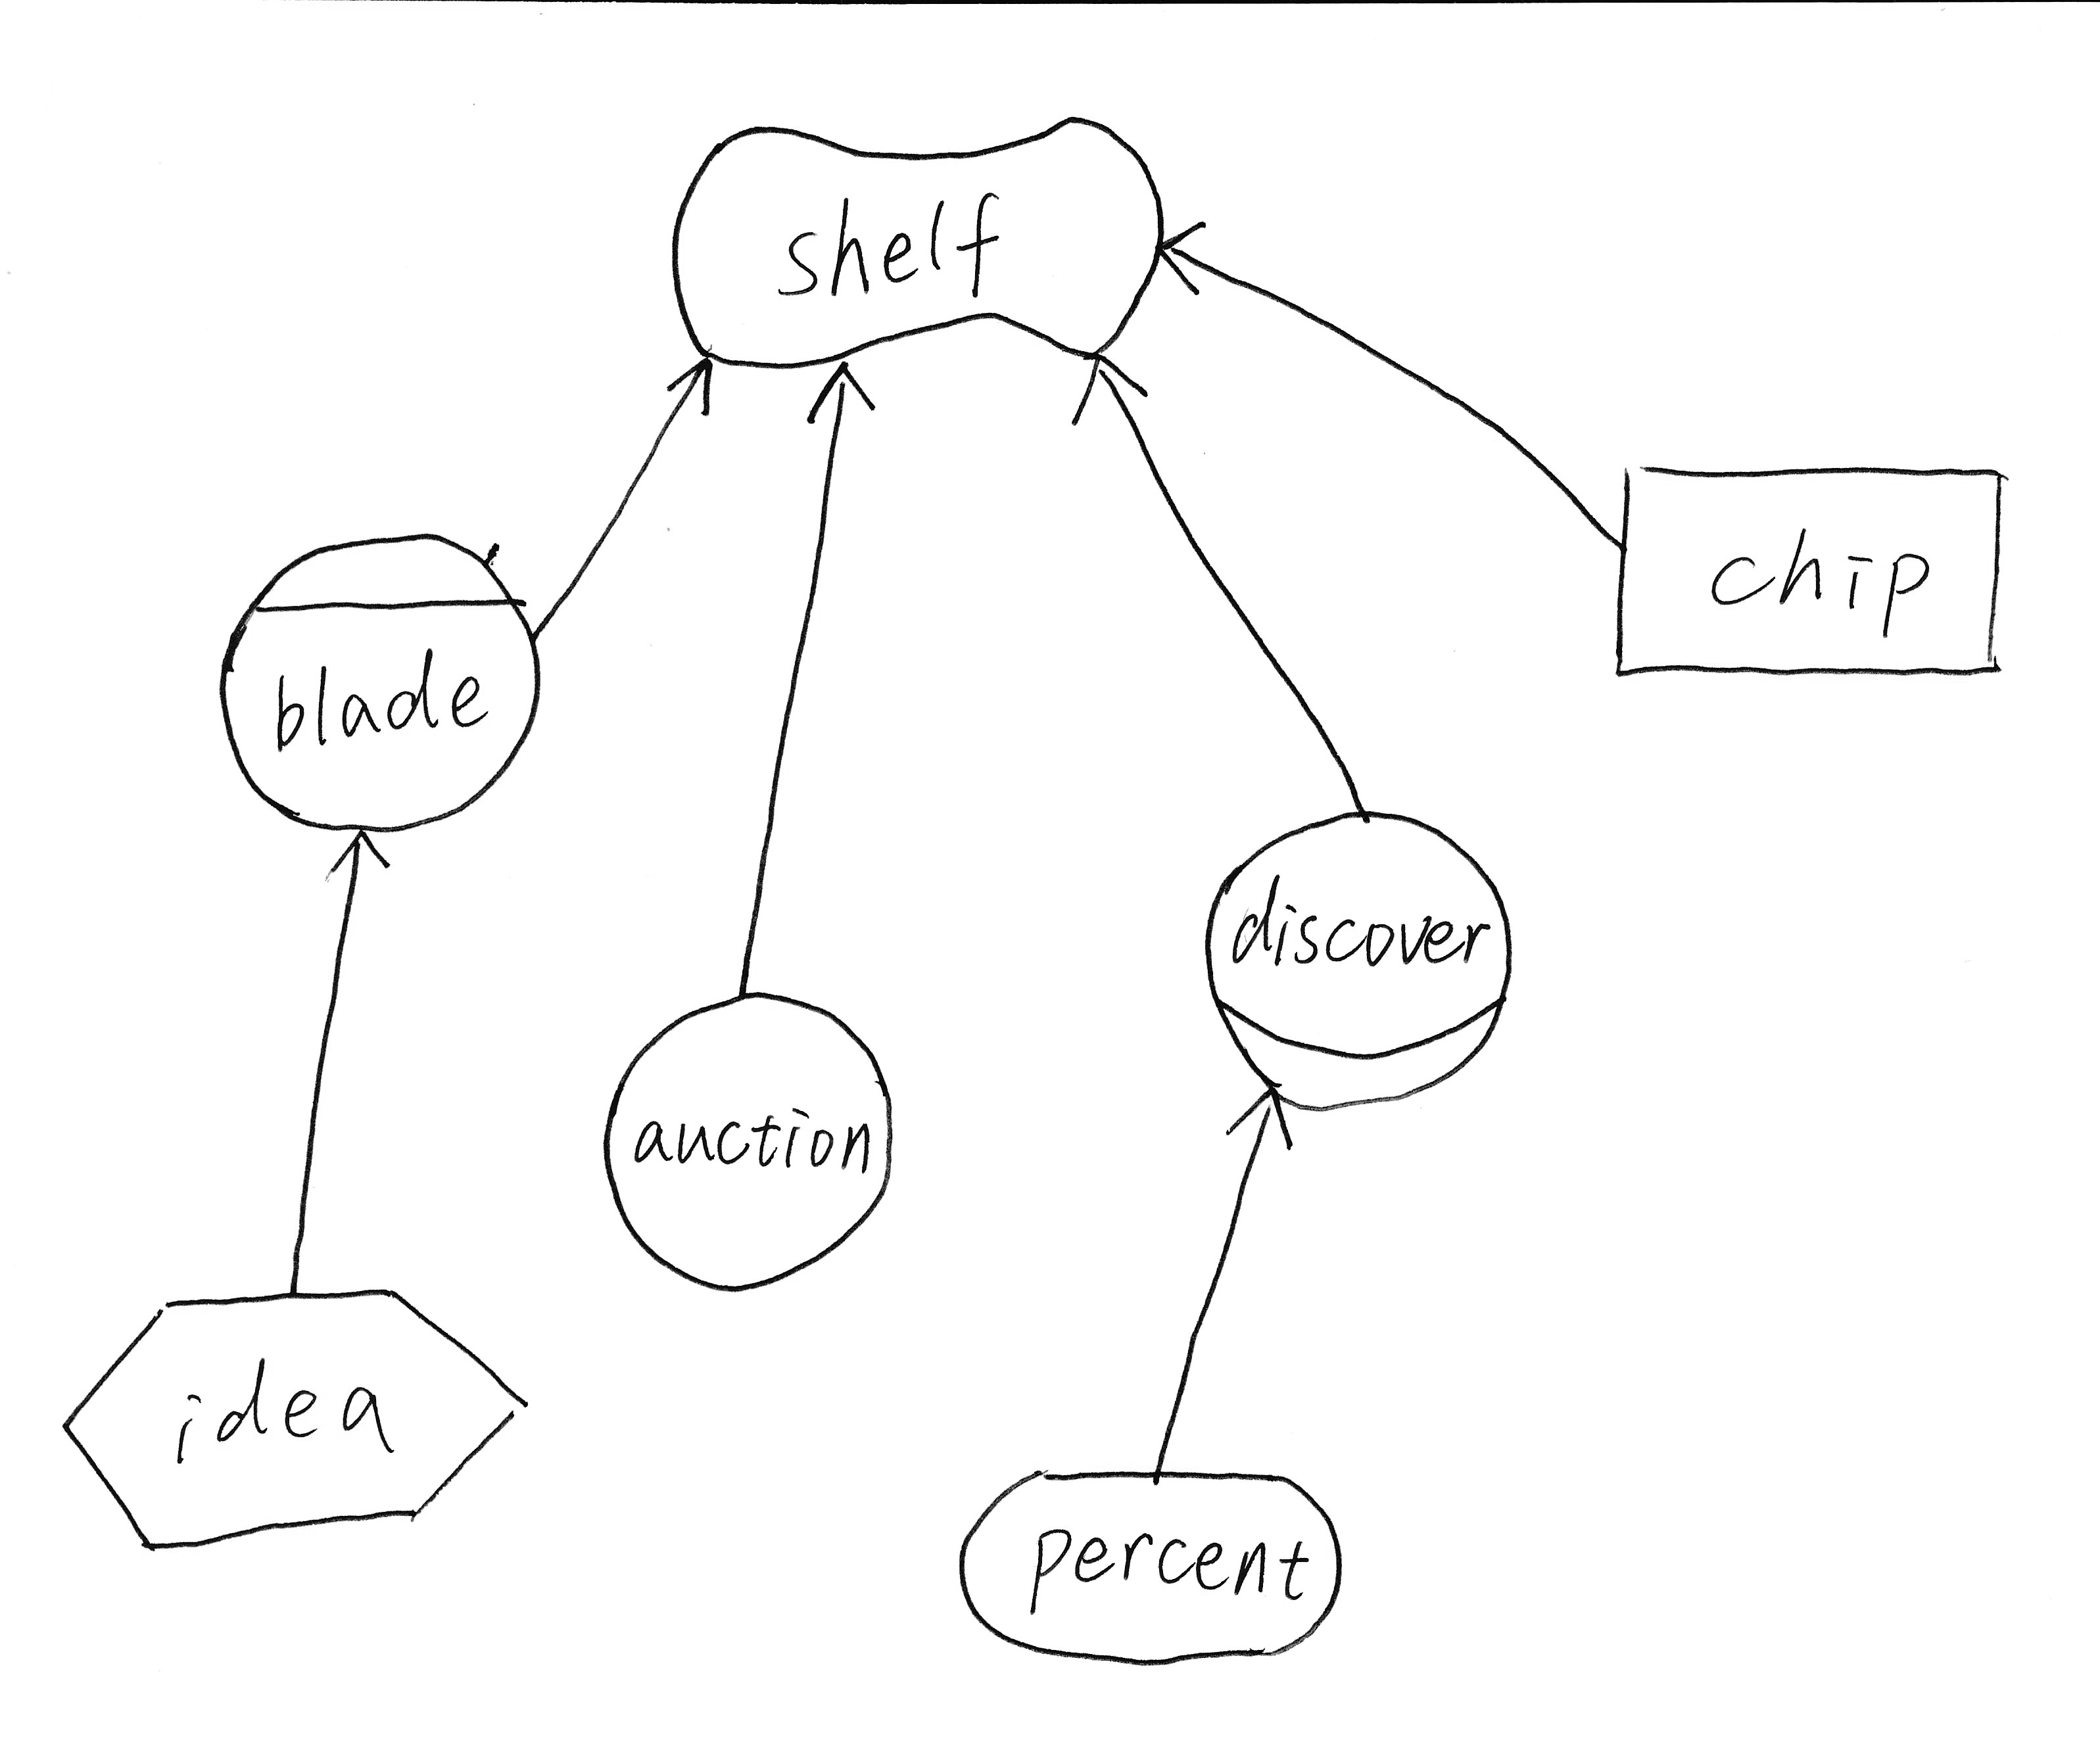 shelf
chip
blade
discover
auction
idea
percent